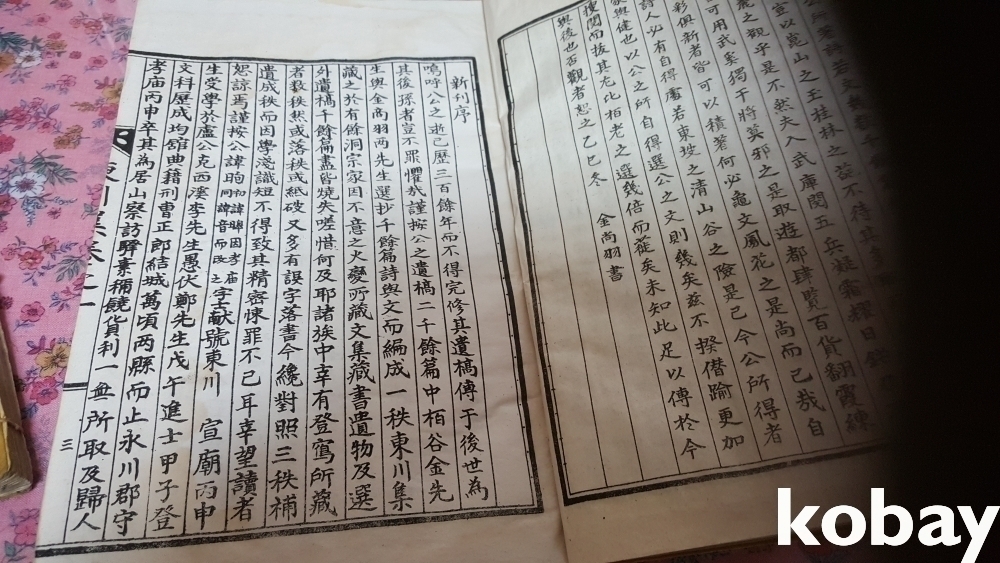 公所著詩若文
宣以崑山之玉桂林之蘂不待其
之觀乎是不然夫入武庫閱五兵凝霜擢日
可用武奚獨干將莫邪之是取遊都肆覽百貨翻霞練
彩俱新者皆可以積著何必龜文鳳花之是尚而已哉自
詩人必有自得處若東坡之清山谷之險是已今公所得者
豪與健也以公之所自得選公之文則幾矣茲不揆僭踰更加
搜閱而拔其尤比栢老之選幾倍而蓰矣未知此足以傳於今
與後也否觀者恕之乙巳冬 金尚羽書
新刊序
嗚呼公之逝已歷三百餘年而不得完修其遺稿傳于後世爲
其後孫者豈不罪懼哉謹按公之遺稿二千餘篇中栢谷金先
生與金尙羽两先生選抄千餘篇詩與文而編成一秩東川集
藏之於有餘洞宗家因不意之火變所藏文集藏書遺物及選
外遺稿千餘篇盡皆燒失嗟惜何及耶諸族中幸有登寫所藏
者数秩然或落秩或紙破又多有誤字落書今纔對照三秩補
遺成秩而因學淺識短不得致其精密悚罪不已耳幸望讀者
恕諒焉謹按公諱昫初諱暉因孝庙同諱音而改之字士献號東川 宣廟丙申
生受學於盧公克西溪李先生愚伏鄭先生戊午進士甲子登
文科歷成均舘典籍刑曹正郎結城萬頃两縣而止永川郡守
孝庙丙申卒其爲居山察訪驛素稱饒貨利一無所取及歸人
東川集卷之一
三
kobay